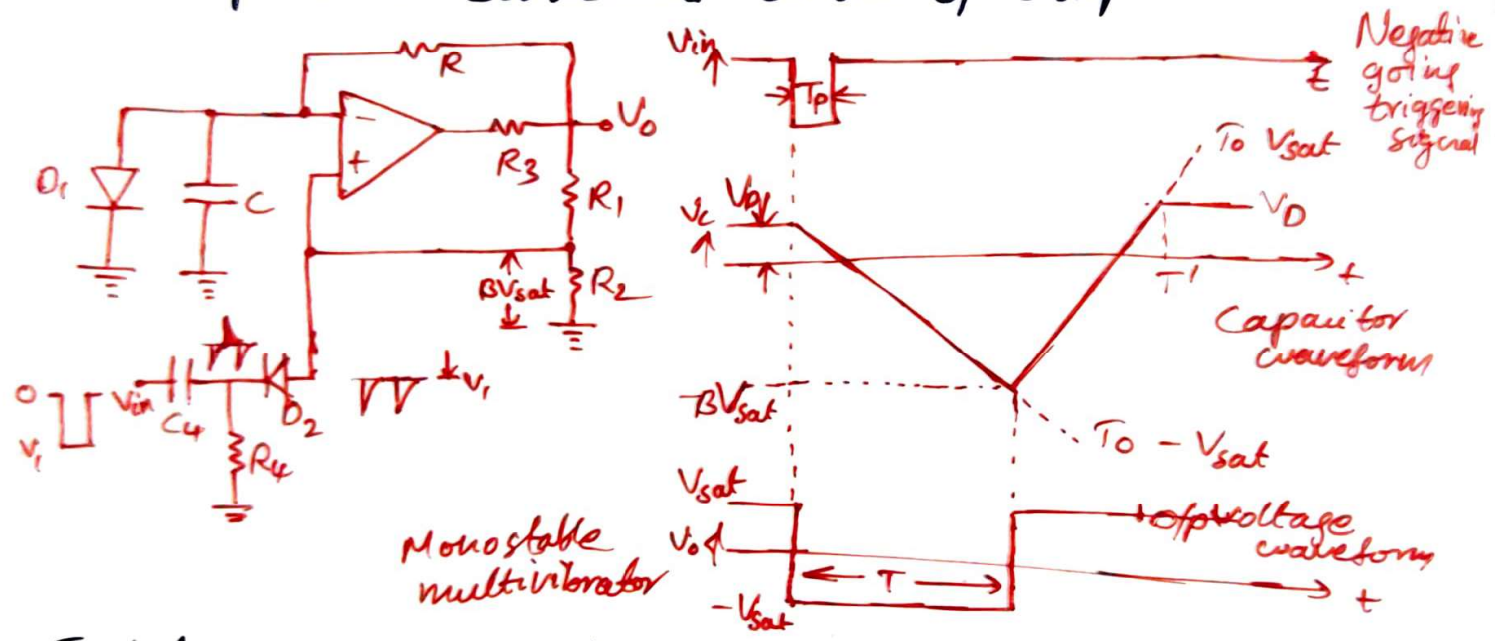 R
V₀
R₃
R₁
D₁
C
βVsat
R₂
Vin
C₄
D₂
V₁
0
V₁
R₄
Monostable
multivibrator
Vin
Tp
t
Negative
going
triggering
signal
To Vsat
Vc
VD
VD
T'
t
Capacitor
waveform
-βVsat
To - Vsat
Vsat
V₀
-Vsat
T
o/p voltage
waveform
t